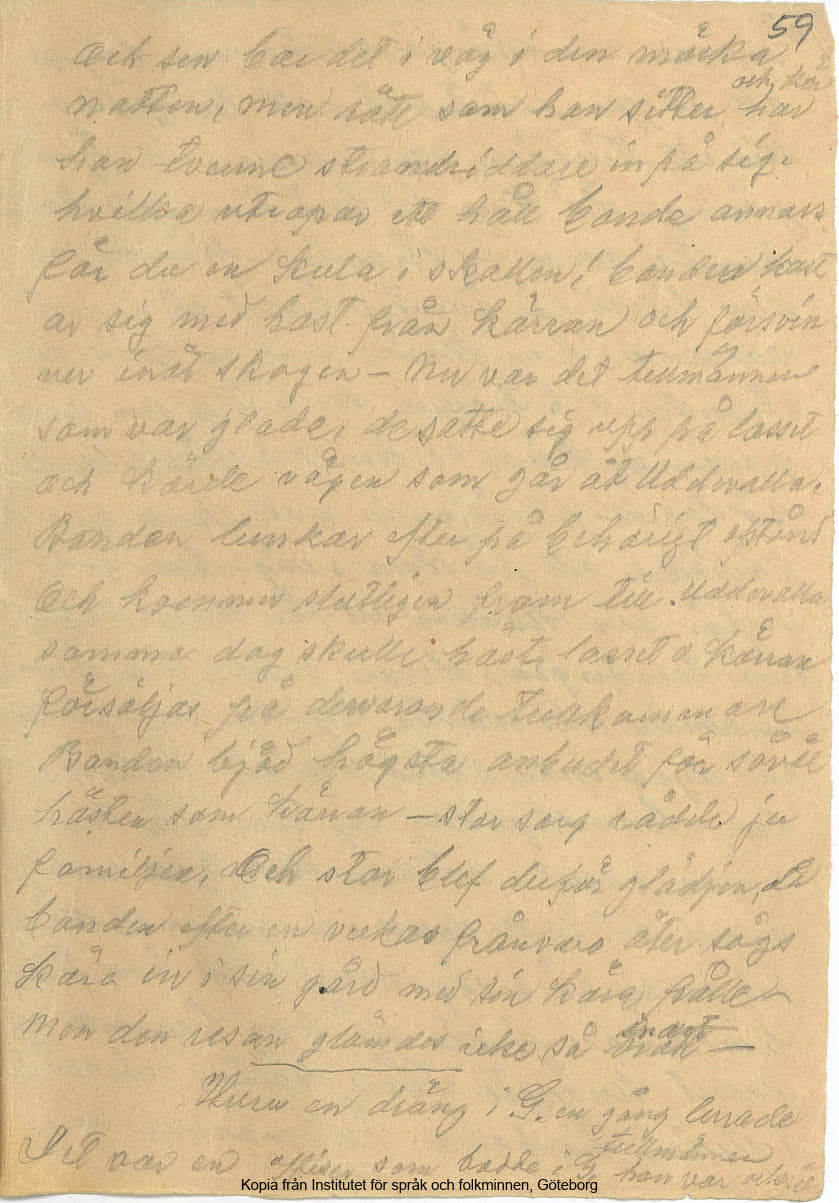 59
Och sen bar det i väg i den mörka
natten, men rätt som han sitter och kör har
han tvenne strandriddare inpå sig.
hvilka utropar att håll bonde annars
får du en kula i skallen! bonden kast
ar sig med hast från kärran och försvin
ner inåt skogen – Nu var det tullmännen
som var glade, de satte sig upp på lasset
och körde vägen som går åt Uddevalla.
Bonden lunkar efter på behörigt afstånd
Och kommer slutligen fram till Uddevalla
samma dag skulle häst, lasset o kärran
försäljas på dervarande tullkammare
Bonden bjöd högsta anbudet för såväl
hästen som kärran – stor sorg rådde ju
familjen, Och stor blef derför glädjen, då
bonden efter en veckas frånvaro åter sågs
köra in i sin gård med sin kära fålle –
Men den resan glömdes icke så snart –
Huru en dräng i G. en gång lurade
tullmännen
Det var en som bodde i G han var
Kopia från Institutet för språk och folkminnen, Göteborg